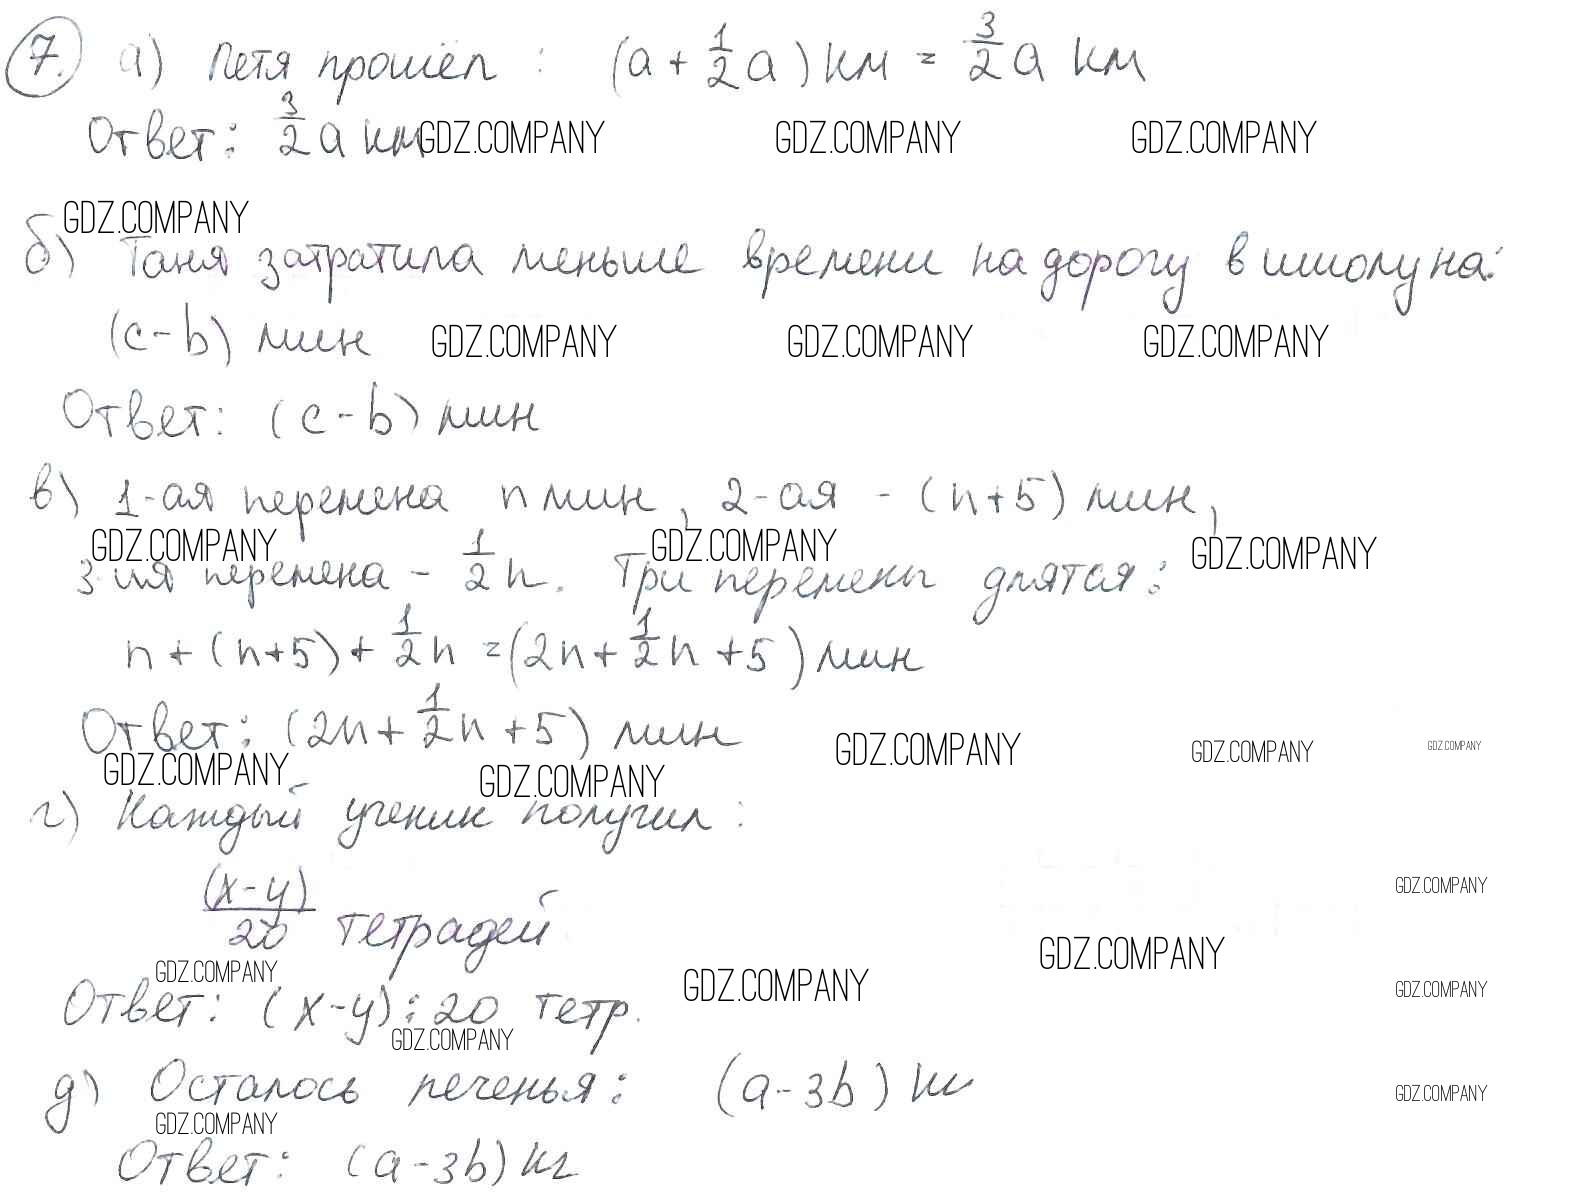 7. а) Петя прошёл: (a + 1/2 a) км = 3/2 a км
Ответ: 3/2 a км GDZ.COMPANY GDZ.COMPANY GDZ.COMPANY
GDZ.COMPANY
б) Таня затратила меньше времени на дорогу в школу на:
(c - b) мин GDZ.COMPANY GDZ.COMPANY GDZ.COMPANY
Ответ: (c - b) мин
в) 1-ая перемена n мин, 2-ая - (n+5) мин,
GDZ.COMPANY GDZ.COMPANY GDZ.COMPANY
3-ия перемена - 1/2 n. Три перемены длятся:
n + (n+5) + 1/2 n = (2n + 1/2 n + 5) мин
Ответ: (2n + 1/2 n + 5) мин
GDZ.COMPANY GDZ.COMPANY GDZ.COMPANY GDZ.COMPANY GDZ.COMPANY
г) Каждый ученик получил:
GDZ.COMPANY
(x - y)/20 тетрадей
GDZ.COMPANY GDZ.COMPANY GDZ.COMPANY GDZ.COMPANY
Ответ: (x - y) : 20 тетр.
GDZ.COMPANY
д) Осталось печенья: (a - 3b) кг
GDZ.COMPANY GDZ.COMPANY
Ответ: (a - 3b) кг